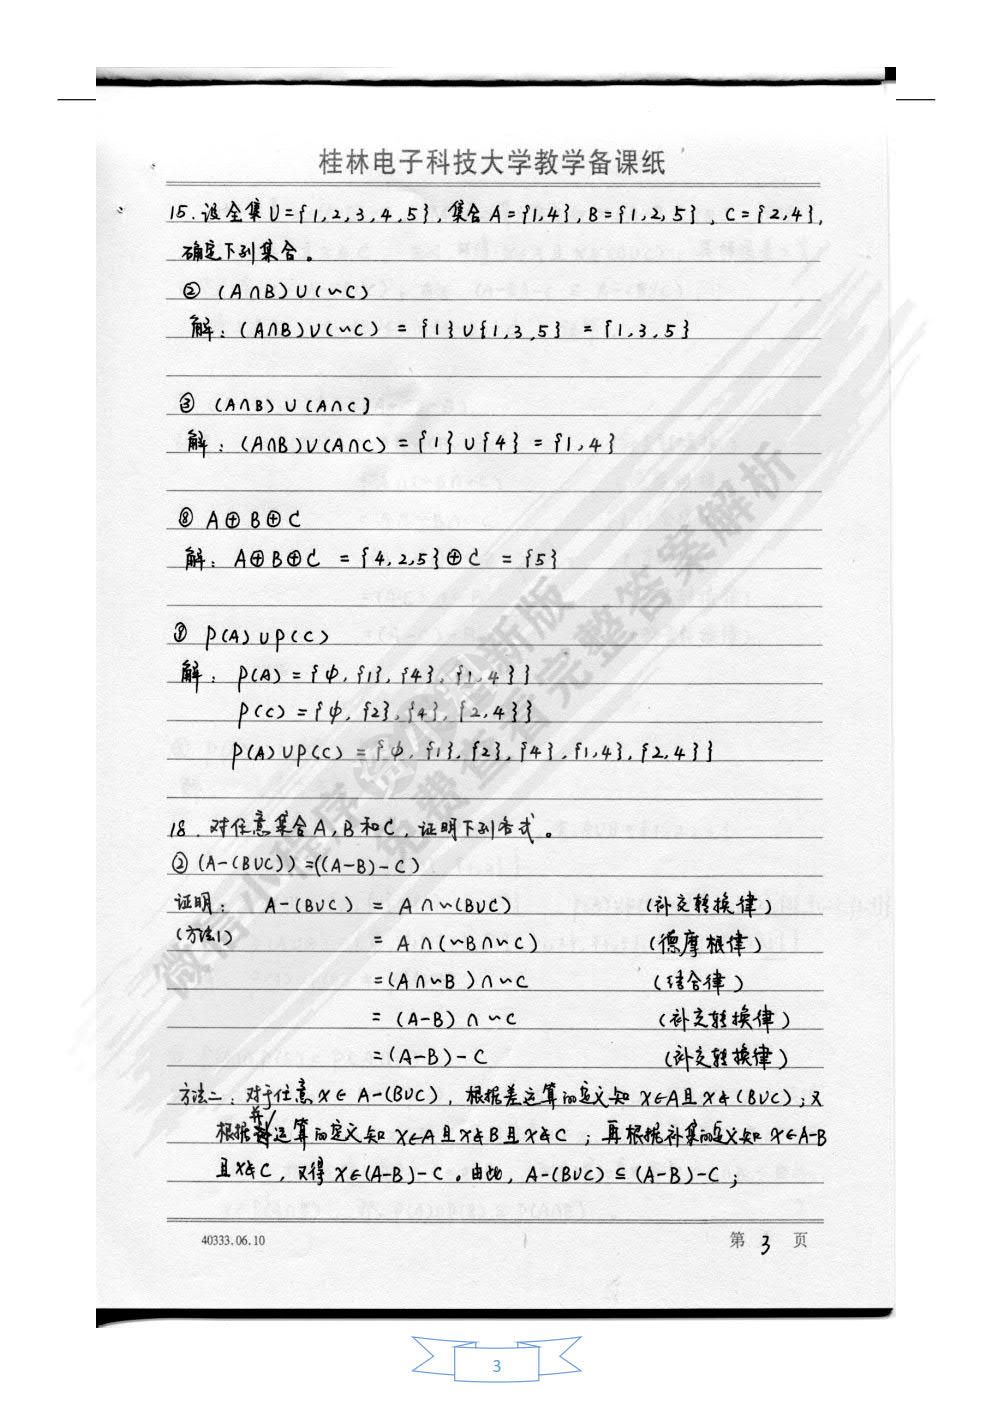 桂林电子科技大学教学备课纸
15.设全集U={1,2,3,4,5},集合A={1,4},B={1,2,5},C={2,4},
确定下列集合。
② (A∩B)∪(~C)
解:(A∩B)∪(~C) = {1}∪{1,3,5} = {1,3,5}
③ (A∩B)∪(A∩C)
解:(A∩B)∪(A∩C) = {1}∪{4} = {1,4}
⑧ A⊕B⊕C
解:A⊕B⊕C = {4,2,5}⊕C = {5}
⑨ P(A)∪P(C)
解:P(A) = {φ,{1},{4},{1,4}}
P(C) = {φ,{2},{4},{2,4}}
P(A)∪P(C) = {φ,{1},{2},{4},{1,4},{2,4}}
18.对任意集合A,B和C,证明下列各式。
② (A-(B∪C))=((A-B)-C)
证明: A-(B∪C) = A∩~(B∪C) (补交转换律)
(方法1) = A∩(~B∩~C) (德摩根律)
=(A∩~B)∩~C (结合律)
= (A-B)∩~C (补交转换律)
=(A-B)-C (补交转换律)
方法二:对于任意x∈A-(B∪C),根据差运算的定义知x∈A且x∉(B∪C);又
根据并运算的定义知x∈A且x∉B且x∉C;再根据补集的定义知x∈A-B
且x∉C,又得x∈(A-B)-C。由此,A-(B∪C)⊆(A-B)-C;
40333.06.10 第 3 页
微信小程序 资小狸 新版
免费查看完整答案解析
3